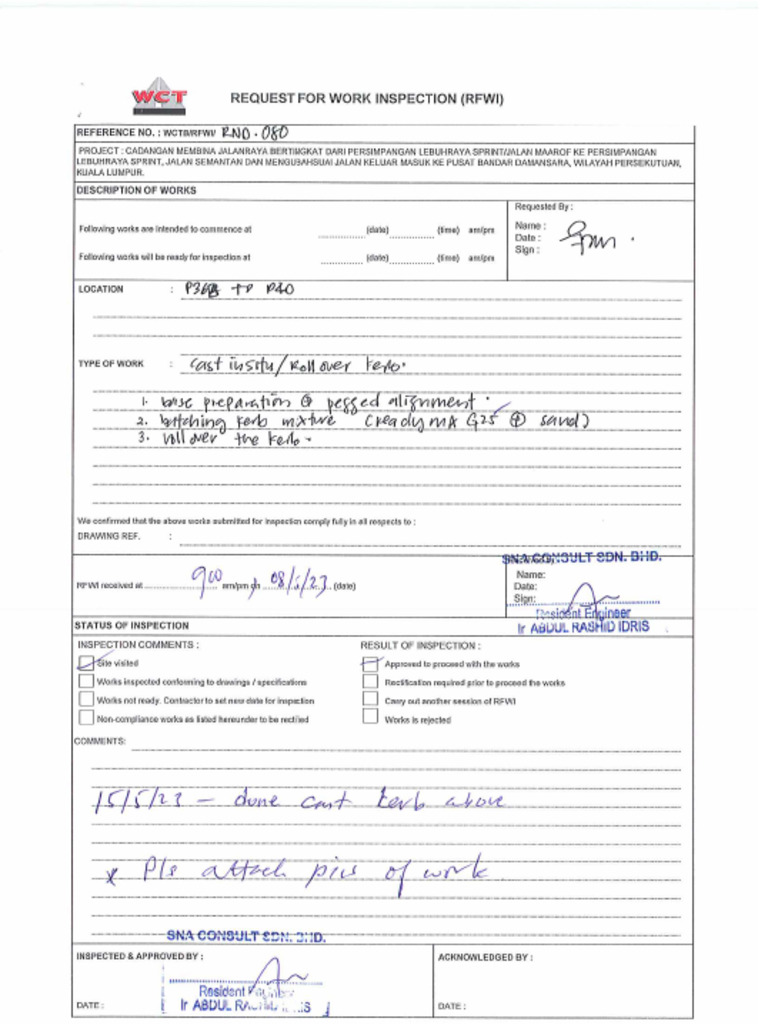 WCT
REQUEST FOR WORK INSPECTION (RFWI)
REFERENCE NO. : WCTB/RFWI/ RND - 080
PROJECT : CADANGAN MEMBINA JALANRAYA BERTINGKAT DARI PERSIMPANGAN LEBUHRAYA SPRINT/JALAN MAAROF KE PERSIMPANGAN
LEBUHRAYA SPRINT, JALAN SEMANTAN DAN MENGUBAHSUAI JALAN KELUAR MASUK KE PUSAT BANDAR DAMANSARA, WILAYAH PERSEKUTUAN,
KUALA LUMPUR.
DESCRIPTION OF WORKS
Following works are intended to commence at (date) (time) am/pm
Following works will be ready for inspection at (date) (time) am/pm
Requested By :
Name :
Date :
Sign :
LOCATION : TO P40
TYPE OF WORK : Cast insitu/Roll over kerb.
1. base preparation @ pegged alignment.
2. batching kerb mixture (ready mix G25 ⊕ sand)
3. roll over the kerb.
We confirmed that the above works submitted for inspection comply fully in all respects to :
DRAWING REF. :
RFWI received at 900 am/pm on 08/5/23 (date)
SNA CONSULT SDN. BHD.
Name:
Date:
Sign:
Resident Engineer
Ir ABDUL RASHID IDRIS
STATUS OF INSPECTION
INSPECTION COMMENTS :
Site visited
Works inspected conforming to drawings / specifications
Works not ready. Contractor to set new date for inspection
Non-compliance works as listed hereunder to be rectified
RESULT OF INSPECTION :
Approved to proceed with the works
Rectification required prior to proceed the works
Carry out another session of RFWI
Works is rejected
COMMENTS:
15/5/23 - done cast kerb above
* Pls attach pics of work
SNA CONSULT SDN. BHD.
INSPECTED & APPROVED BY :
Resident Engineer
Ir ABDUL
DATE :
ACKNOWLEDGED BY :
DATE :